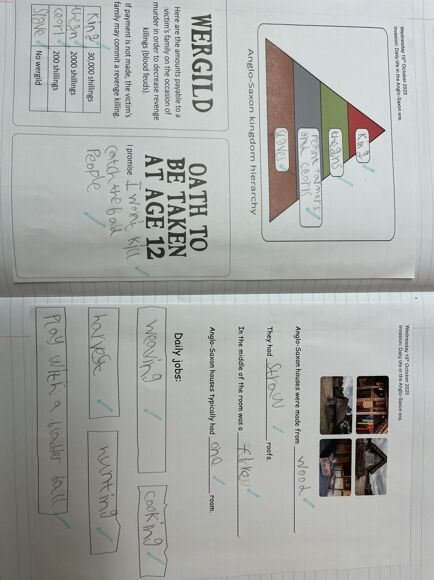 Wednesday 15th October 2025
Invasion: Daily life in the Anglo-Saxon era.
King
thegns
peasant farmers
and ceorls
slaves
Anglo-Saxon kingdom hierarchy
WERGILD
Here are the amounts payable to a
victim's family on the occasion of
murder in order to decrease revenge
killings (blood feuds).
If payment is not made, the victim's
family may commit a revenge killing.
King 30,000 shillings
thegn 2000 shillings
ceorl 200 shillings
slave No wergild
OATH TO
BE TAKEN
AT AGE 12
I promise I won't kill
catch the bad
people
Wednesday 15th October 2025
Invasion: Daily life in the Anglo-Saxon era.
Anglo-Saxon houses were made from wood
They had straw roofs.
In the middle of the room was a
Anglo-Saxon houses typically had one room.
Daily jobs:
weaving
cooking
harvest
hunting
Play with a bladder ball